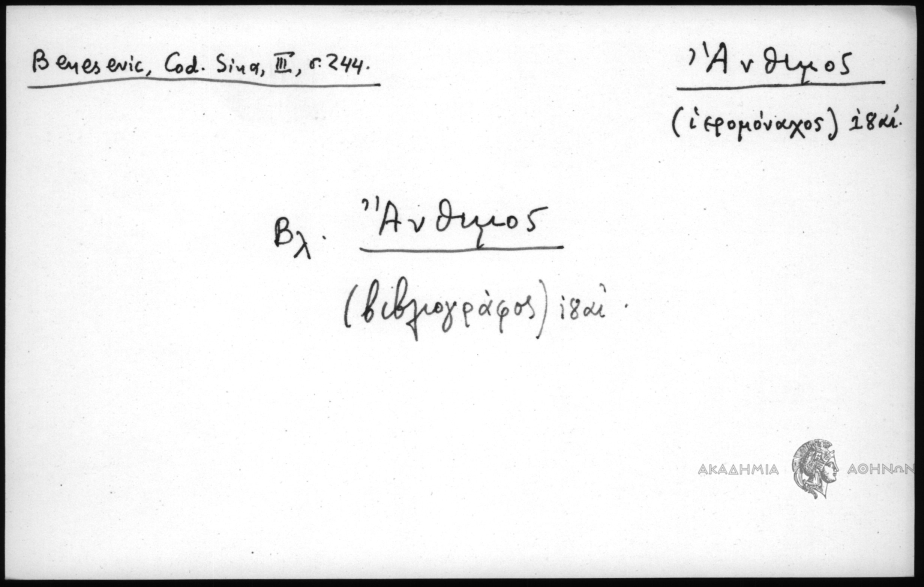 Benesevic, Cod. Sina, III, σ. 244.
Ἄνθιμος
(ἱερομόναχος) ι8 αἰ.
Βλ. Ἄνθιμος
(βιβλιογράφος) ι8 αἰ.
ΑΚΑΔΗΜΙΑ ΑΘΗΝΩΝ